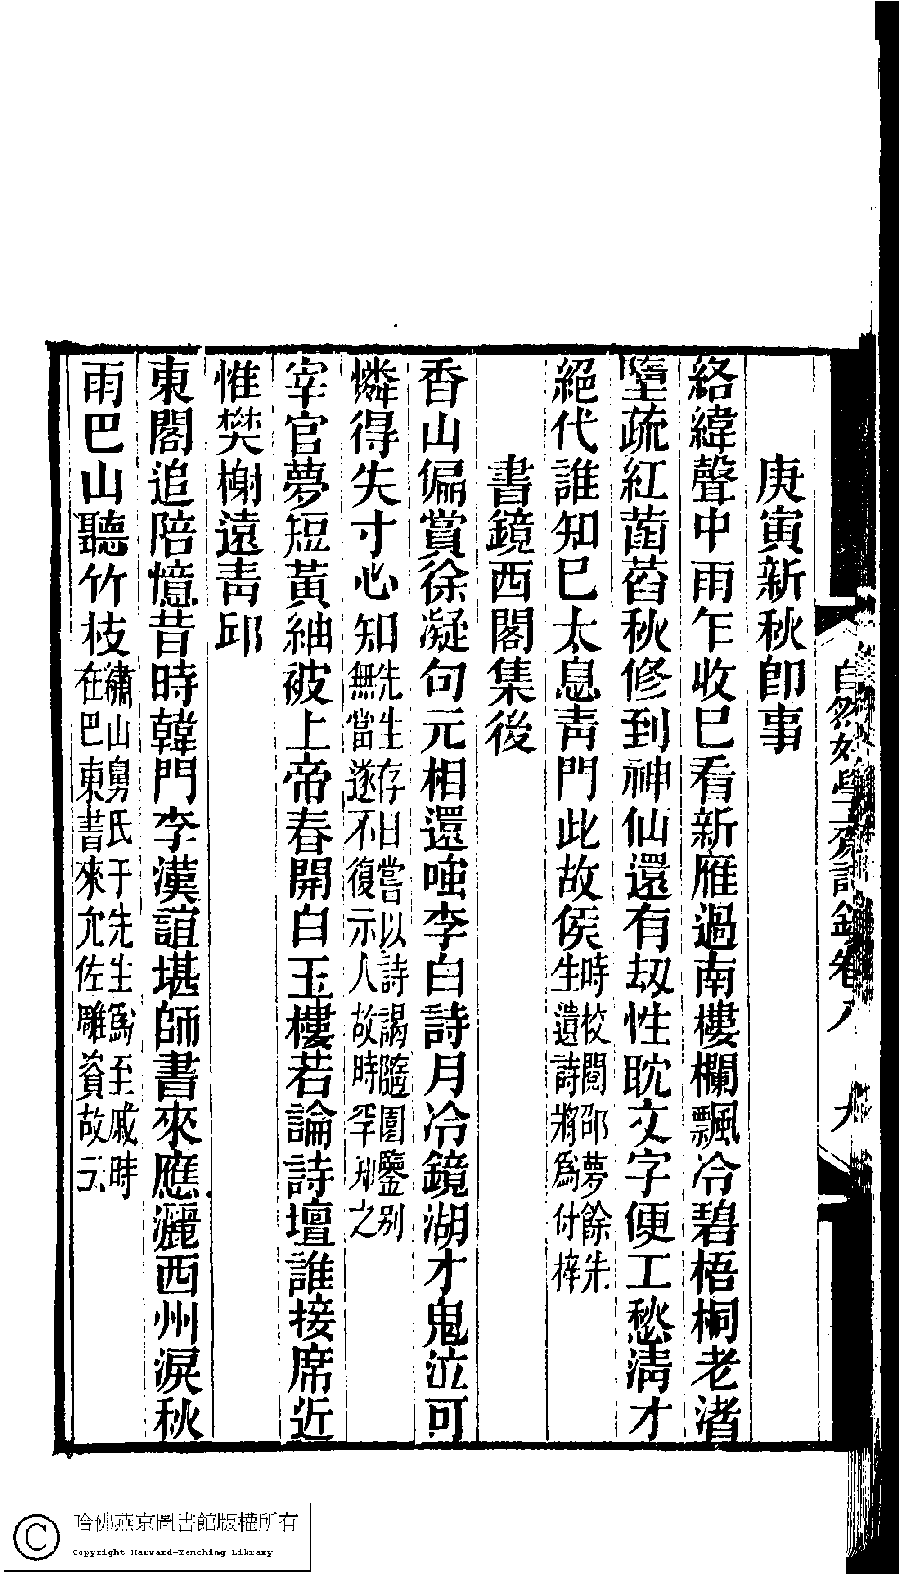 庚寅新秋即事
絡緯聲中雨乍收已看新雁過南樓欄飄冷碧梧桐老渚
墮疏紅菡萏秋修到神仙還有刼性躭文字便工愁淸才
絕代誰知已太息靑門此故侯時校閱邵夢餘先
生遺詩將爲付梓
書鏡西閣集後
香山偏賞徐凝句元相還嗤李白詩月冷鏡湖才鬼泣可
憐得失寸心知先生存日嘗以詩謁隨園鑒别
無當遂不復示人故時罕知之
宰官夢短黃紬被上帝春開白玉樓若論詩壇誰接席近
惟樊榭遠靑邱
東閣追陪憶昔時韓門李漢誼堪師書來應灑西州淚秋
雨巴山聽竹枝繡山舅氏于先生爲至戚時
在巴東書來允佐雕貲故云
自然好學齋詩鈔卷八
九
哈佛燕京圖書館版權所有
Copyright Harvard-Yenching Library